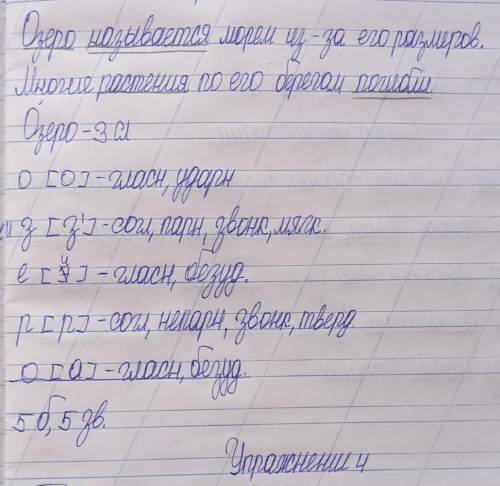 Озеро называется морем из-за его размеров.
Многие растения по его берегам погибли.
Озеро-3 сл
о [о]-гласн, ударн
з [з']-согл, парн, звонк, мягк.
е [и]-гласн, безуд.
р [р]-согл, непарн, звонк, тверд.
о [а]-гласн, безуд.
5 б, 5 зв.
Упражнении 4